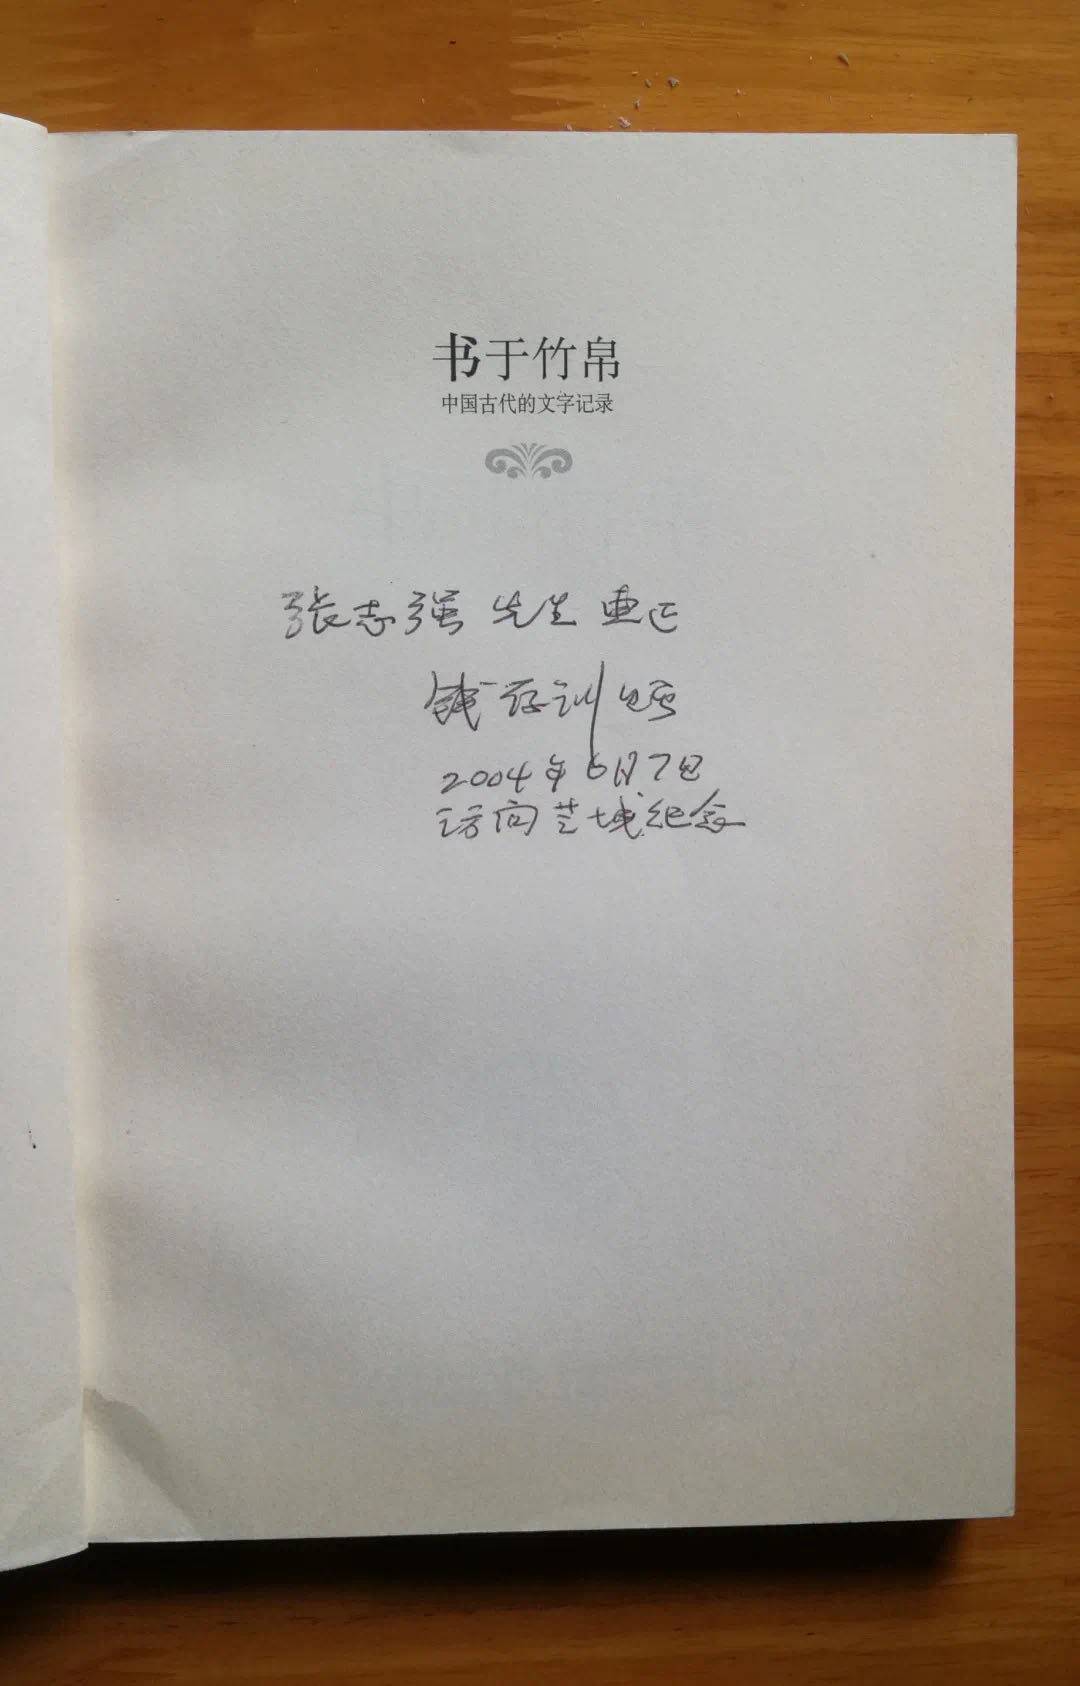 书于竹帛
中国古代的文字记录
张志强 先生 惠正
钱存训
2004年6月7日
访问芝城纪念